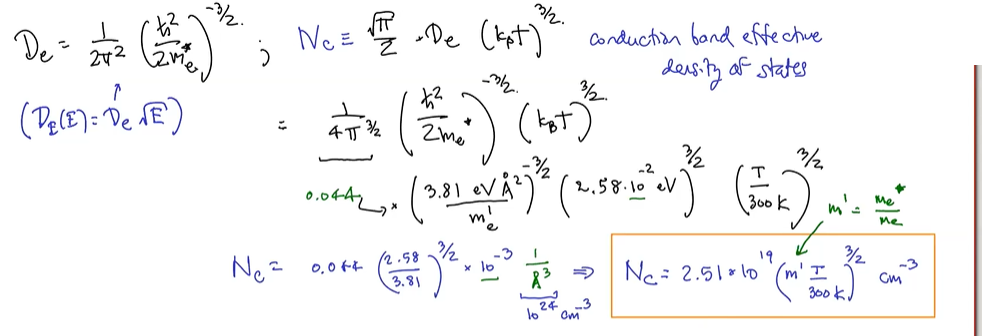 D_e = 1/(2π²) (ħ²/(2m_e*))^(-3/2) ; N_c ≡ √π/2 · D_e (k_B T)^(3/2) conduction band effective
density of states
(D_E(E) = D_e √E)
= 1/(4π^(3/2)) (ħ²/(2m_e*))^(-3/2) (k_B T)^(3/2)
0.044 × (3.81 eV Å²/m'_e)^(-3/2) (2.58·10^(-2) eV)^(3/2) (T/300K)^(3/2) m' = m_e*/m_e
N_c = 0.044 (2.58/3.81)^(3/2) × 10^(-3) 1/Å³ ⇒ N_c = 2.51 × 10^19 (m' T/300K)^(3/2) cm^(-3)
10^24 cm^(-3)